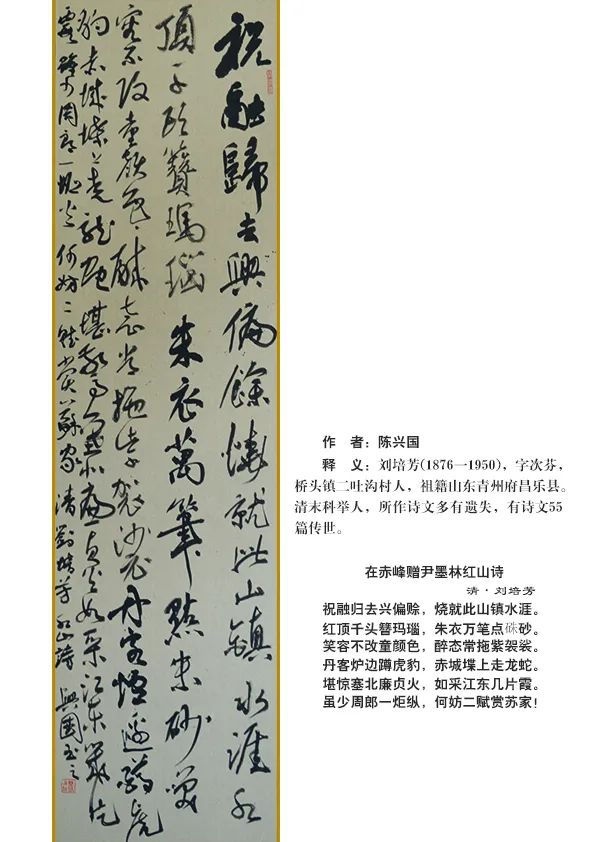 祝融歸去興偏餘燒就此山鎮水涯紅
頂千頭簪瑪瑙朱衣萬筆點朱砂笑
容不改童顏色醉態常拖紫袈裟丹客爐邊蹲虎
豹赤城堞上走龍蛇堪驚塞北廉貞火如采江東幾片
霞雖少周郎一炬縱何妨二賦賞蘇家 清劉培芳紅山詩 興國書之
作 者：陈兴国
释 义：刘培芳(1876一1950)，字次芬，
桥头镇二吐沟村人，祖籍山东青州府昌乐县。
清末科举人，所作诗文多有遗失，有诗文55
篇传世。
在赤峰赠尹墨林红山诗
清·刘培芳
祝融归去兴偏赊，烧就此山镇水涯。
红顶千头簪玛瑙，朱衣万笔点硃砂。
笑容不改童颜色，醉态常拖紫袈裟。
丹客炉边蹲虎豹，赤城堞上走龙蛇。
堪惊塞北廉贞火，如采江东几片霞。
虽少周郎一炬纵，何妨二赋赏苏家！